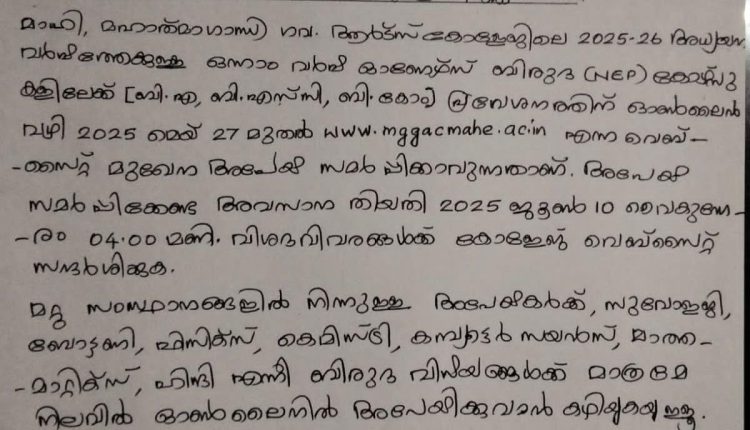 മാഹി, മഹാത്മാഗാന്ധി ഗവ. ആർട്സ് കോളേജിലെ 2025-26 അധ്യയന
വർഷത്തേക്കുള്ള ഒന്നാം വർഷ ഓണേഴ്സ് ബിരുദ (NEP) കോഴ്സു
കളിലേക്ക് [ബി.എ, ബി.എസ്സി, ബി.കോം] പ്രവേശനത്തിന് ഓൺലൈൻ
വഴി 2025 മെയ് 27 മുതൽ www.mggacmahe.ac.in എന്ന വെബ്-
-സൈറ്റ് മുഖേന അപേക്ഷ സമർപ്പിക്കാവുന്നതാണ്. അപേക്ഷ
സമർപ്പിക്കേണ്ട അവസാന തിയതി 2025 ജൂൺ 10 വൈകുന്നേ-
-രം 04.00 മണി. വിശദവിവരങ്ങൾക്ക് കോളേജ് വെബ്സൈറ്റ്
സന്ദർശിക്കുക.
മറ്റു സംസ്ഥാനങ്ങളിൽ നിന്നുള്ള അപേക്ഷകർക്ക്, സുവോളജി,
ബോട്ടണി, ഫിസിക്സ്, കെമിസ്ട്രി, കമ്പ്യൂട്ടർ സയൻസ്, മാത്ത-
-മാറ്റിക്സ്, ഹിന്ദി എന്നീ ബിരുദ വിഷയങ്ങൾക്ക് മാത്രമേ
നിലവിൽ ഓൺലൈനിൽ അപേക്ഷിക്കുവാൻ കഴിയുകയുള്ളൂ.